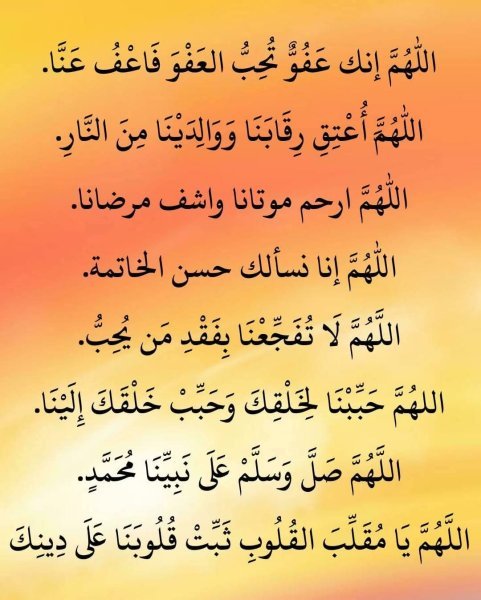 اللَّهُمَّ إنك عَفُوٌّ تُحِبُّ العَفْوَ فَاعْفُ عَنَّا.
اللَّهُمَّ أُعْتِقِ رِقَابَنَا وَوَالِدَيْنَا مِنَ النَّارِ.
اللَّهُمَّ ارحم موتانا واشف مرضانا.
اللَّهُمَّ إنا نسألك حسن الخاتمة.
اللَّهُمَّ لَا تُفَجِّعْنَا بِفَقْدِ مَن يُحِبُّ.
اللهُمَّ حَبِّبْنَا لِخَلْقِكَ وَحَبِّبْ خَلْقَكَ إِلَيْنَا.
اللَّهُمَّ صَلَّ وَسَلَّمْ عَلَى نَبِيِّنَا مُحَمَّدٍ.
اللَّهُمَّ يَا مُقَلِّبَ القُلُوبِ ثَبِّتْ قُلُوبَنَا عَلَى دِينِكَ